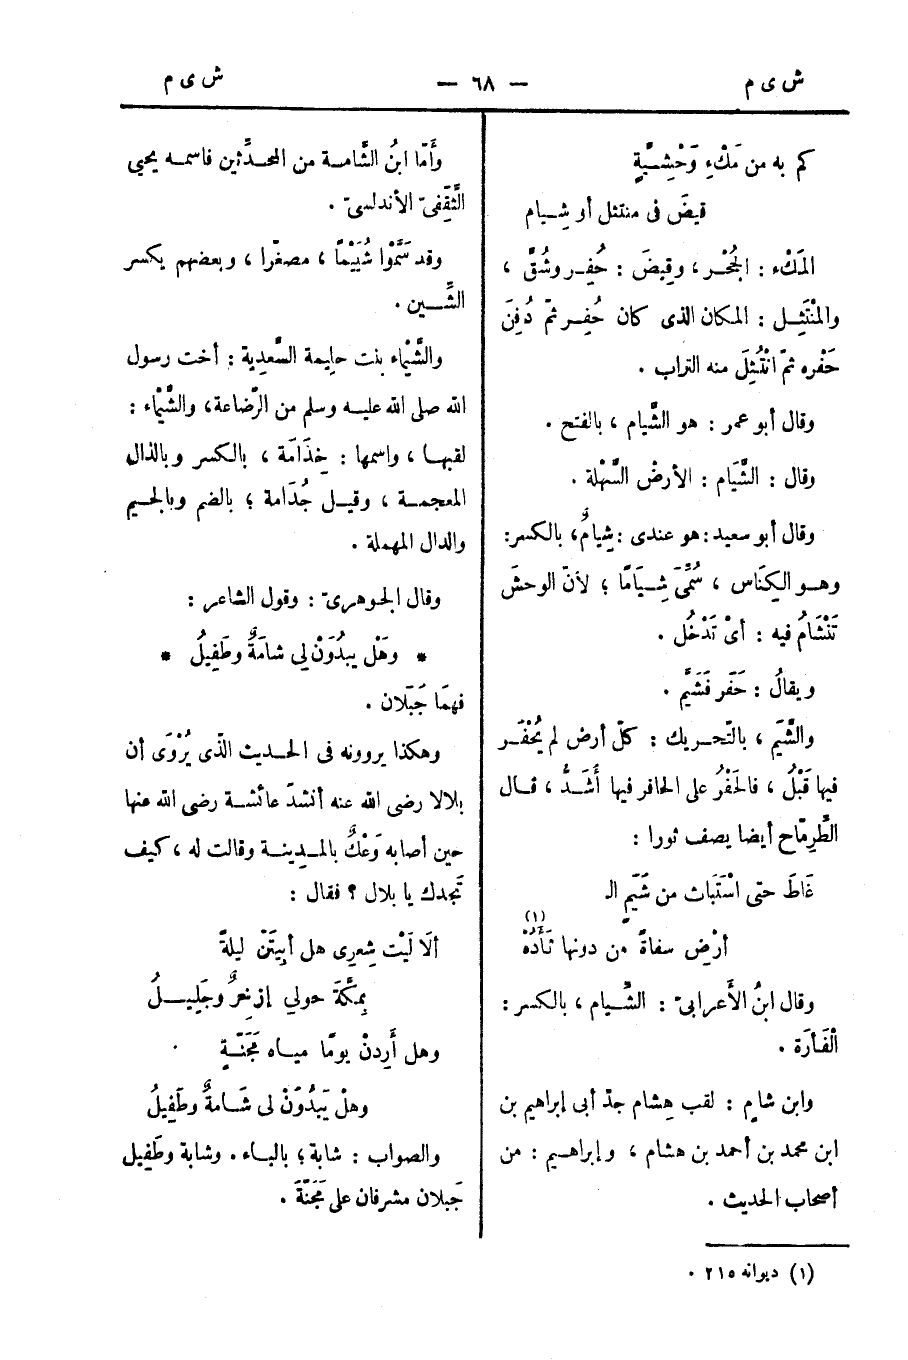 ش ى م
— ٦٨ —
ش ى م
كم به من مَكْءِ وَحْشِيَّةٍ
قِيضَ فى منتثل أو شِيام
المَكْء : الجُحْر ، وقِيضَ : حُفِر وشُقَّ ،
والمُنْتَثِل : المكان الذى كان حُفِر ثمّ دُفِنَ
حَفْره ثمّ انْتُثِلَ منه التراب .
وقال أبو عمر : هو الشَّيام ، بالفتح .
وقال : الشَّيَام : الأرضُ السَّهْلة .
وقال أبو سعيد : هو عندى : شِيامٌ ، بالكسر :
وهو الكِنَاس ، سُمِّىَ شِيَامًا ؛ لأنّ الوحشَ
تَنْشَامُ فيه : أىْ تَدْخُل .
ويقالُ : حَفَر فَشَيَّم .
والشَّيَم ، بالتّحريك : كلّ أرض لم يُحْفَر
فيها قَبْلُ ، فالحَفْرُ على الحافر فيها أَشَدُّ ، قال
الطِّرِمّاح أيضا يصف ثورا :
غَاطَ حتى اسْتَبَاث من شَيَمِ الـ
أرْضِ سفاةً من دونها ثَأَدُهْ (١)
وقال ابنُ الأَعرابىّ : الشِّيام ، بالكسر :
الْفَأرَة .
وابن شامٍ : لقب هِشام جدّ أبى إبراهيم بن
ابن محمد بن أحمد بن هشام ، وإبراهيم : من
أصحاب الحديث .
(١) ديوانه ٢١٥ .
وأَمّا ابنُ الشَّامة من المحدِّثين فاسمه يحيى
الثَّقِفىّ الأندلسىّ .
وقد سَمَّوْا شُيَيْمًا ، مصغّرا ، وبعضهم يكسر
الشِّين .
والشَّيْماء بنت حليمة السَّعدية : أخت رسول
الله صلى الله عليه وسلم من الرّضاعة ، والشَّيْماء :
لقبها ، واسمها : خِذَامَة ، بالكسر وبالذال
المعجمة ، وقيل جُدَامة ؛ بالضم وبالجيم
والدال المهملة .
وقال الجوهرىّ : وقول الشاعر :
* وهَل يبدُوَنْ لى شامَةٌ وطَفِيلُ *
فهمَا جَبَلان .
وهكذا يروونه فى الحديث الّذى يُرْوَى أن
بلالا رضى الله عنه أنشدَ عائشة رضى الله عنها
حين أصابه وَعْكٌ بالمدينة وقالت له ، كيف
تَجدك يا بلال ؟ فقال :
ألَا لَيْت شِعرى هل أبِيتَنْ ليلةً
بمكَّةَ حولى إذخِرٌ وجَلِيلُ
وهل أَرِدنْ يومًا مياه مَجَنّةٍ
وهلْ يَبدُوَنْ لى شَامةٌ وطَفِيلُ
والصواب : شابة ؛ بالباء . وشابة وطَفِيل
جَبلان مشرفان على مَجَنّةَ .